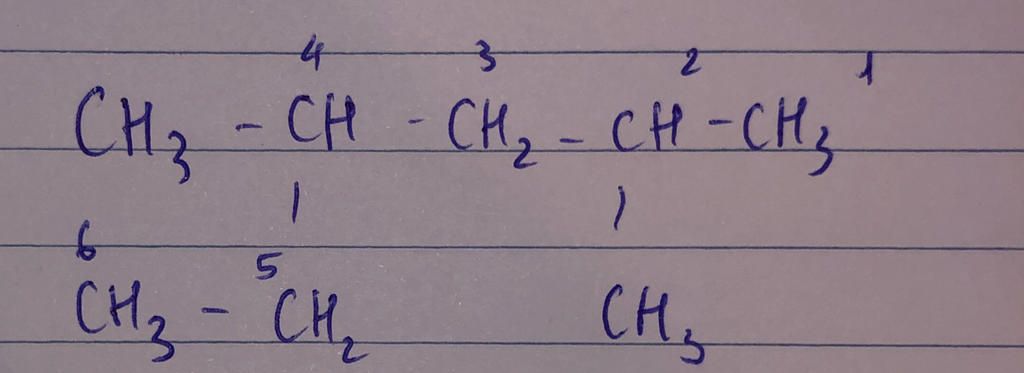 4 3 2 1
CH₃ - CH - CH₂ - CH - CH₃
| |
6 5
CH₃ - CH₂ CH₃